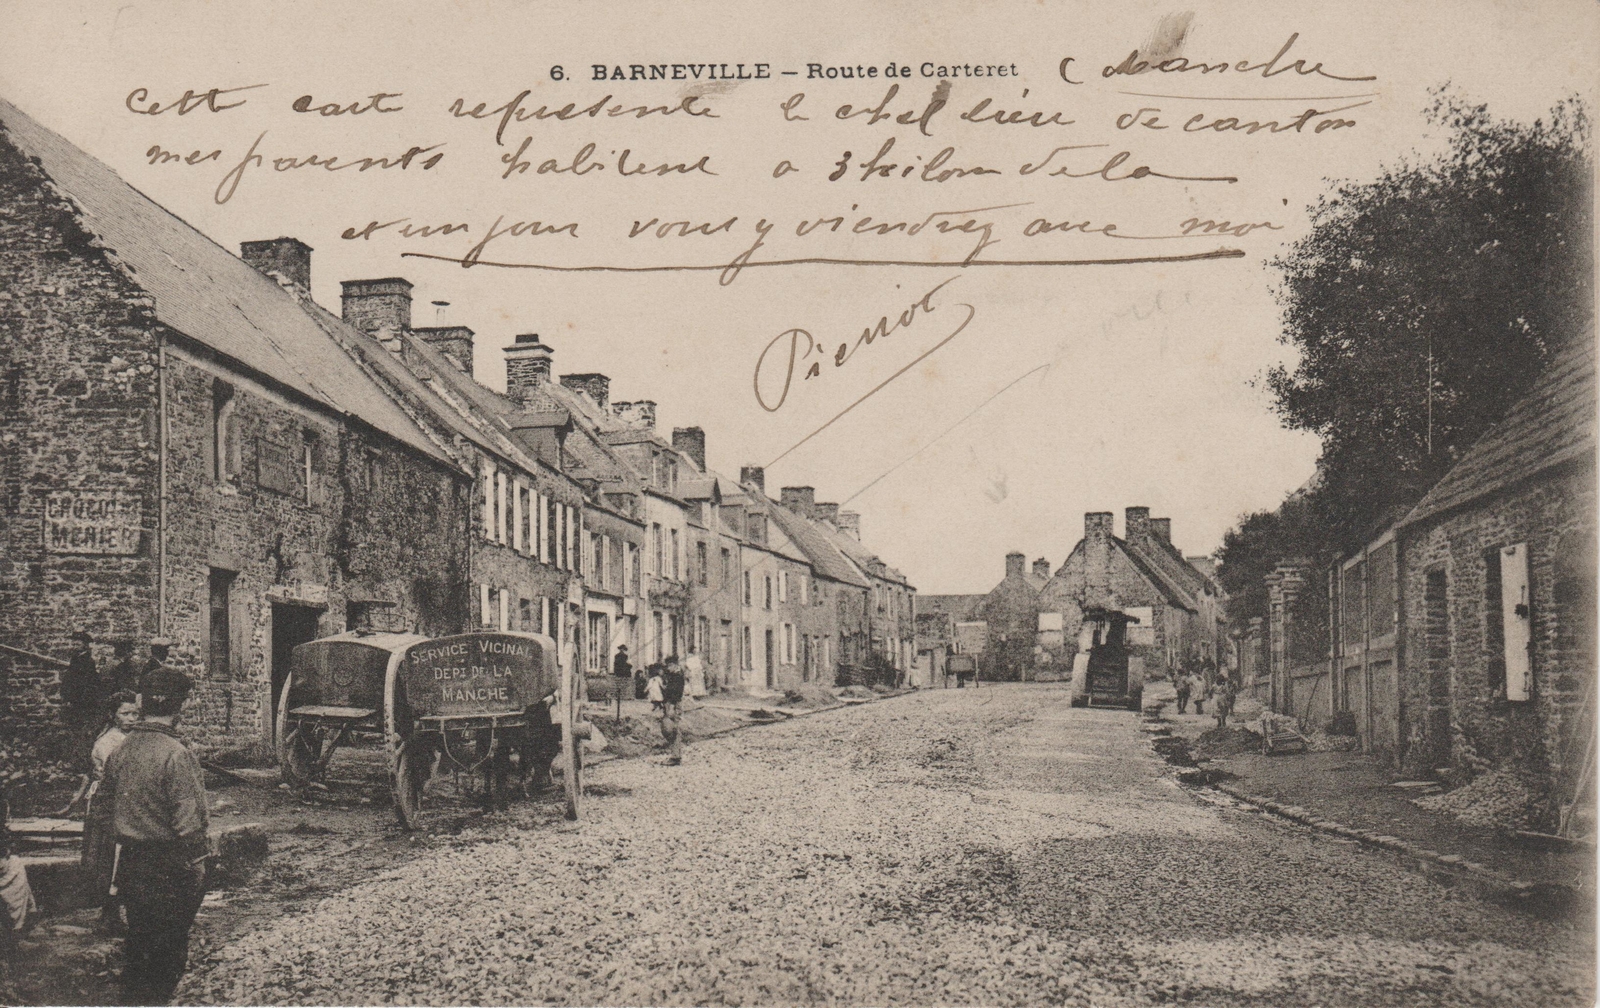 6. BARNEVILLE — Route de Carteret ( Manche
Cette carte represente le chef lieu de canton
mes parents habitent a 3 kilom de la
et un jour vous y viendrez avec moi
Pierrot
CHOCOLAT
MENIER
SERVICE VICINAL
DEPT DE LA
MANCHE